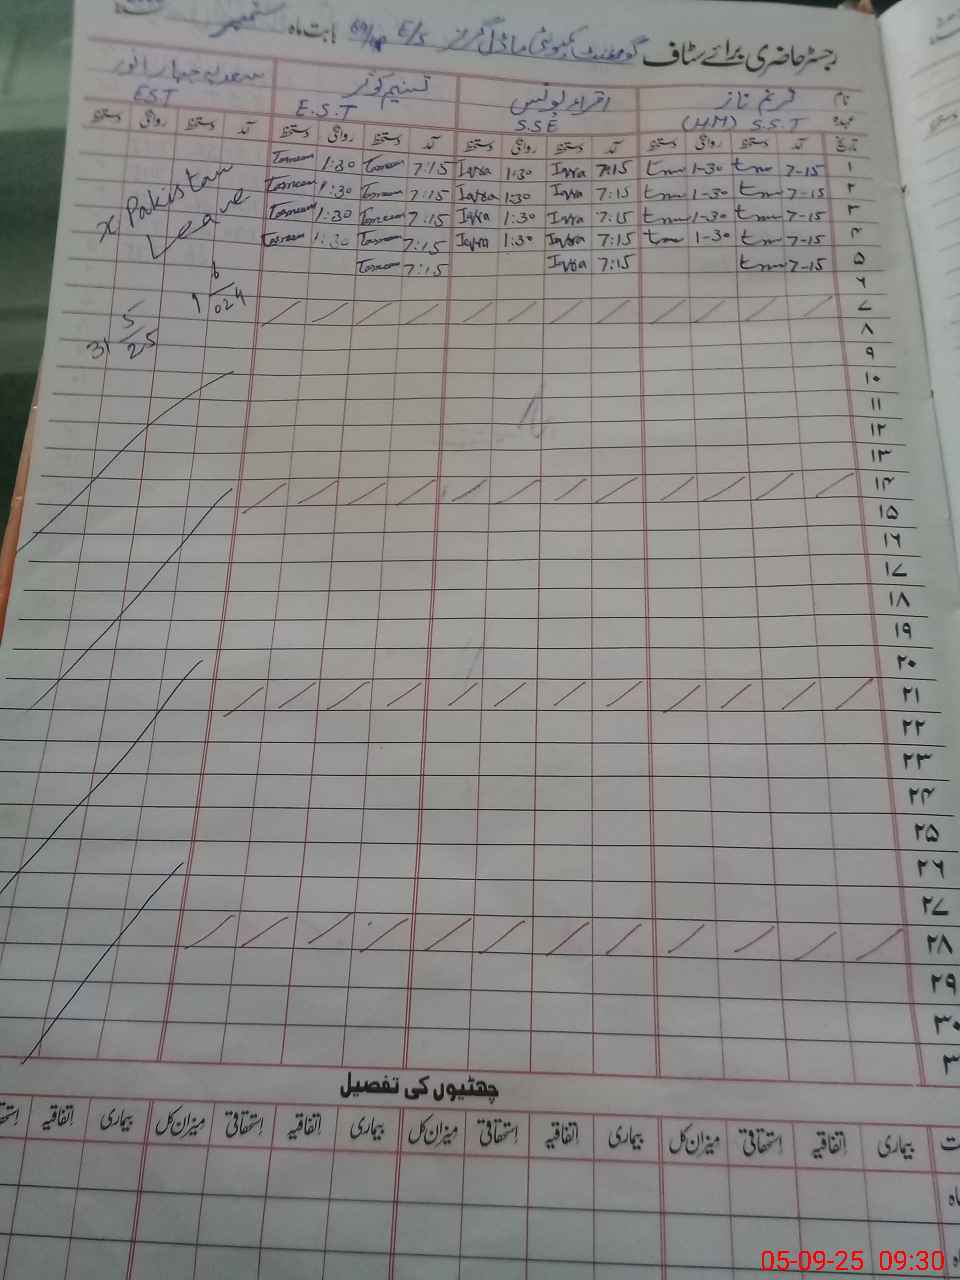 رجسٹر حاضری برائے سٹاف گورنمنٹ کمیونٹی ماڈل گرلز E/S بابت ماہ ستمبر
نام
عہدہ
S.S.T (HM)
S.S.E
تسنیم کوثر
E.S.T
EST
تاریخ آمد دستخط روانگی دستخط آمد دستخط روانگی دستخط آمد دستخط روانگی دستخط آمد دستخط روانگی دستخط
۱ 7-15 1-30 7:15 Iqra 1:30 Iqra 7:15 Tasneem 1:30 Tasneem
۲ 7-15 1-30 7:15 Iqra 1:30 Iqra 7:15 Tasneem 1:30 Tasneem
۳ 7-15 1-30 7:15 Iqra 1:30 Iqra 7:15 Tasneem 1:30 Tasneem
۴ 7-15 1-30 7:15 Iqra 1:30 Iqra 7:15 Tasneem 1:30 Tasneem
۵ 7-15 7:15 Iqra 7:15 Tasneem
x Pakistan
Leave
۶
۷
۸
۹
۱۰
۱۱
۱۲
۱۳
۱۴
۱۵
۱۶
۱۷
۱۸
۱۹
۲۰
۲۱
۲۲
۲۳
۲۴
۲۵
۲۶
۲۷
۲۸
۲۹
۳۰
۳
چھٹیوں کی تفصیل
بیماری اتفاقیہ استحقاقی میزان کل بیماری اتفاقیہ استحقاقی میزان کل بیماری اتفاقیہ استحقاقی میزان کل بیماری اتفاقیہ
05-09-25 09:30